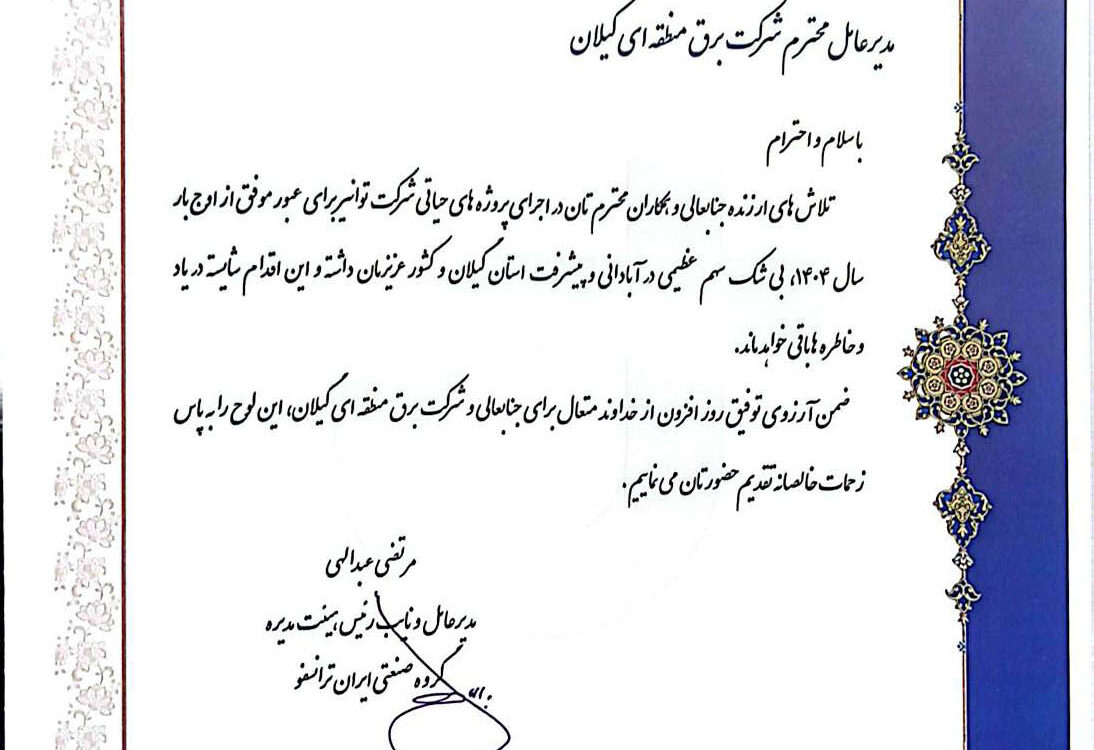 مدیرعامل محترم شرکت برق منطقه ای گیلان
باسلام و احترام
تلاش های ارزنده جنابعالی و همکاران محترم تان در اجرای پروژه های حیاتی شرکت توانیر برای عبور موفق از اوج بار
سال ۱۴۰۴، بی شک سهم عظیمی در آبادانی و پیشرفت استان گیلان و کشور عزیزمان داشته و این اقدام شایسته در یاد
و خاطره ها باقی خواهد ماند.
ضمن آرزوی توفیق روز افزون از خداوند متعال برای جنابعالی و شرکت برق منطقه ای گیلان، این لوح را به پاس
زحمات خالصانه تقدیم حضورتان می نماییم.
مرتضی عبدالهی
مدیرعامل و نایب رئیس هیئت مدیره
گروه صنعتی ایران ترانسفو